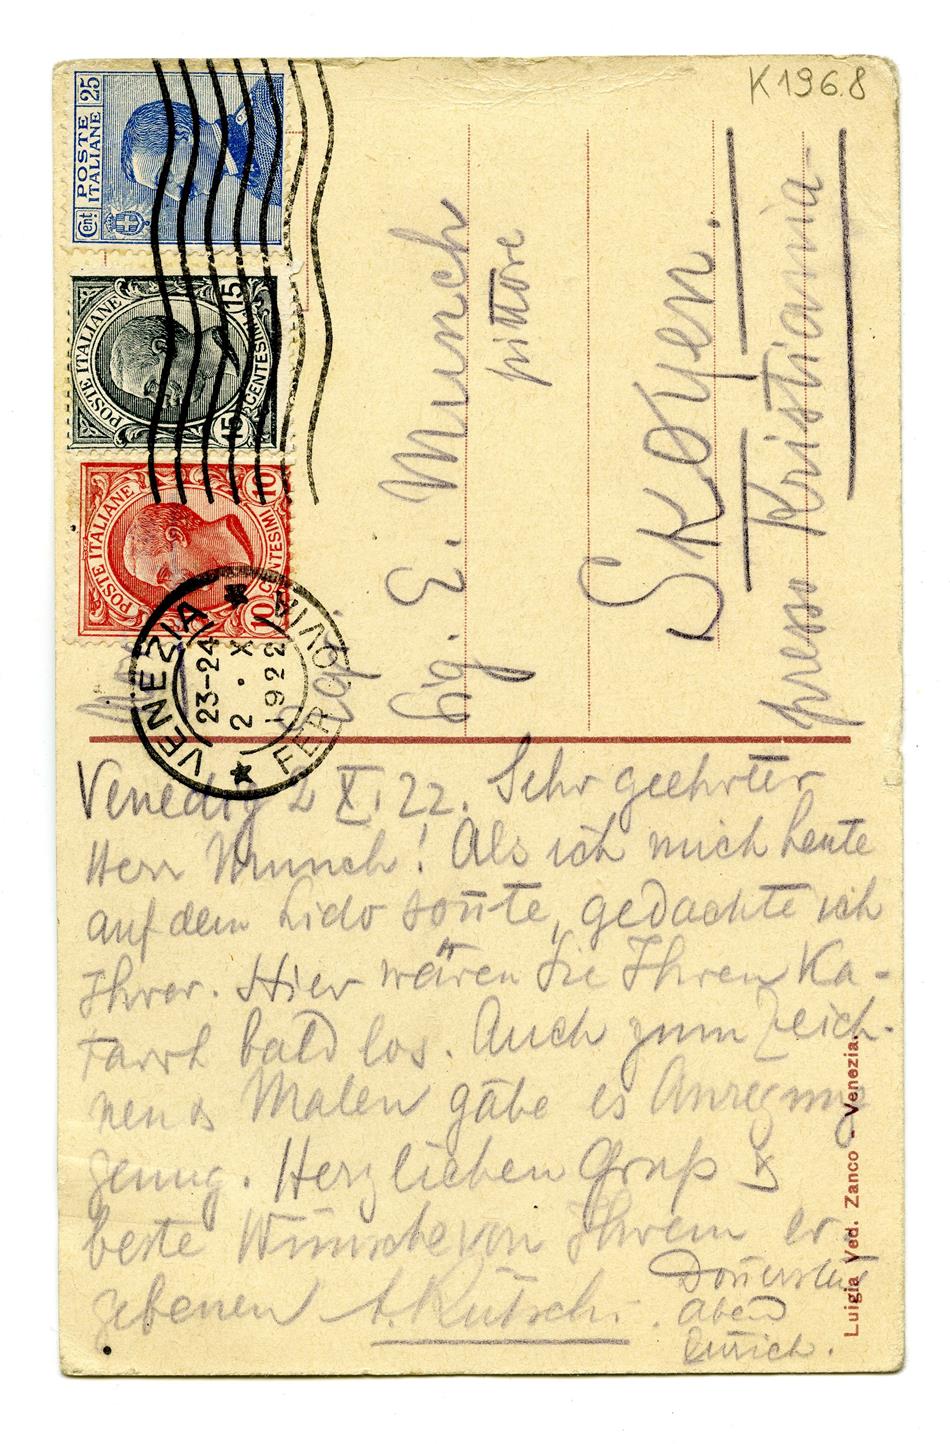 K1968
POSTE
ITALIANE
25
Cent
POSTE ITALIANE
15 CENTESIMI 15
POSTE ITALIANE
10 CENTESIMI 10
VENEZIA
23-24
2 · X
1922
FERROVIA
Sig. E. Munch
pittore
Skoyen.
presso Kristiania-
Venedig 2 X. 22. Sehr geehrter
Herr Munch! Als ich mich heute
auf dem Lido son̄te, gedachte ich
Ihrer. Hier wären Sie Ihren Ka-
tarrh bald los. Auch zum Zeich-
nen & Malen gäbe es Anregung
genug. Herzlichen Gruß &
beste Wünsche von Ihrem er-
gebenen A. Rütschi.
Don̄erstag
Abend
Zürich.
Luigia Ved. Zanco - Venezia.